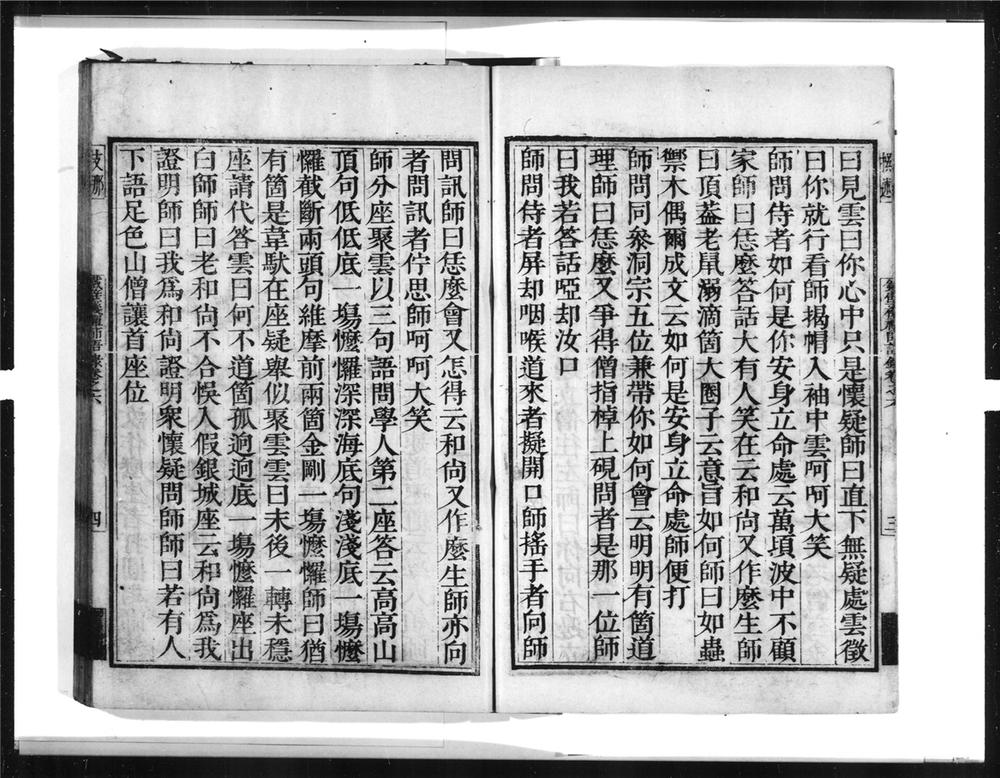 曰見雲曰你心中只是懷疑師曰直下無疑處雲徵
曰你就行看師揭帽入袖中雲呵呵大笑
師問侍者如何是你安身立命處云萬頃波中不顧
家師曰恁麼答話大有人笑在云和尚又作麼生師
曰頂葢老鼠溺滴箇大圈子云意旨如何師曰如蟲
禦木偶爾成文云如何是安身立命處師便打
師問同叅洞宗五位兼帶你如何會云明明有箇道
理師曰恁麼又爭得僧指棹上硯問者是那一位師
曰我若答話啞却汝口
師問侍者屏却咽喉道來者擬開口師搖手者向師
問訊師曰恁麼會又怎得云和尚又作麼生師亦向
者問訊者佇思師呵呵大笑
師分座聚雲以三句語問學人第二座答云高高山
頂句低低底一塲㦬㦬深深海底句淺淺底一塲㦬
㦬截斷兩頭句維摩前兩箇金剛一塲㦬㦬師曰猶
有箇是韋馱在座疑舉似聚雲雲曰末後一轉未穩
座請代答雲曰何不道箇孤逈逈底一塲㦬㦬座出
白師師曰老和尚不合悞入假銀城座云和尚爲我
證明師曰我爲和尚證明衆懷疑問師師曰若有人
下語足色山僧讓首座位
三
四